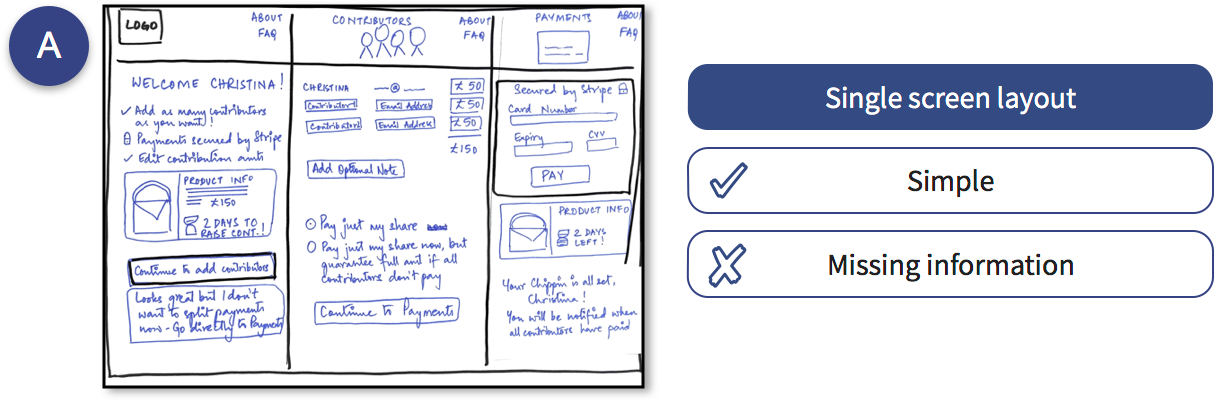 A
LOGO
ABOUT
FAQ
WELCOME CHRISTINA!
Add as many contributors
as you want!
Payments secured by Stripe
Edit contribution amts
PRODUCT INFO
£150
2 DAYS TO
RAISE CONT.!
Continue to add contributors
Looks great but I don't
want to split payments
now - Go directly to Payments
CONTRIBUTORS
ABOUT
FAQ
CHRISTINA @ £50
Contributor1 Email Address £50
Contributor2 Email Address £50
£150
Add Optional Note
Pay just my share
Pay just my share now, but
guarantee full amt if all
contributors don't pay
Continue to Payments
PAYMENTS
ABOUT
FAQ
Secured by Stripe
Card Number
Expiry CVV
PAY
PRODUCT INFO
2 DAYS
LEFT!
Your Chippin is all set,
Christina!
You will be notified when
all contributors have paid
Single screen layout
Simple
Missing information